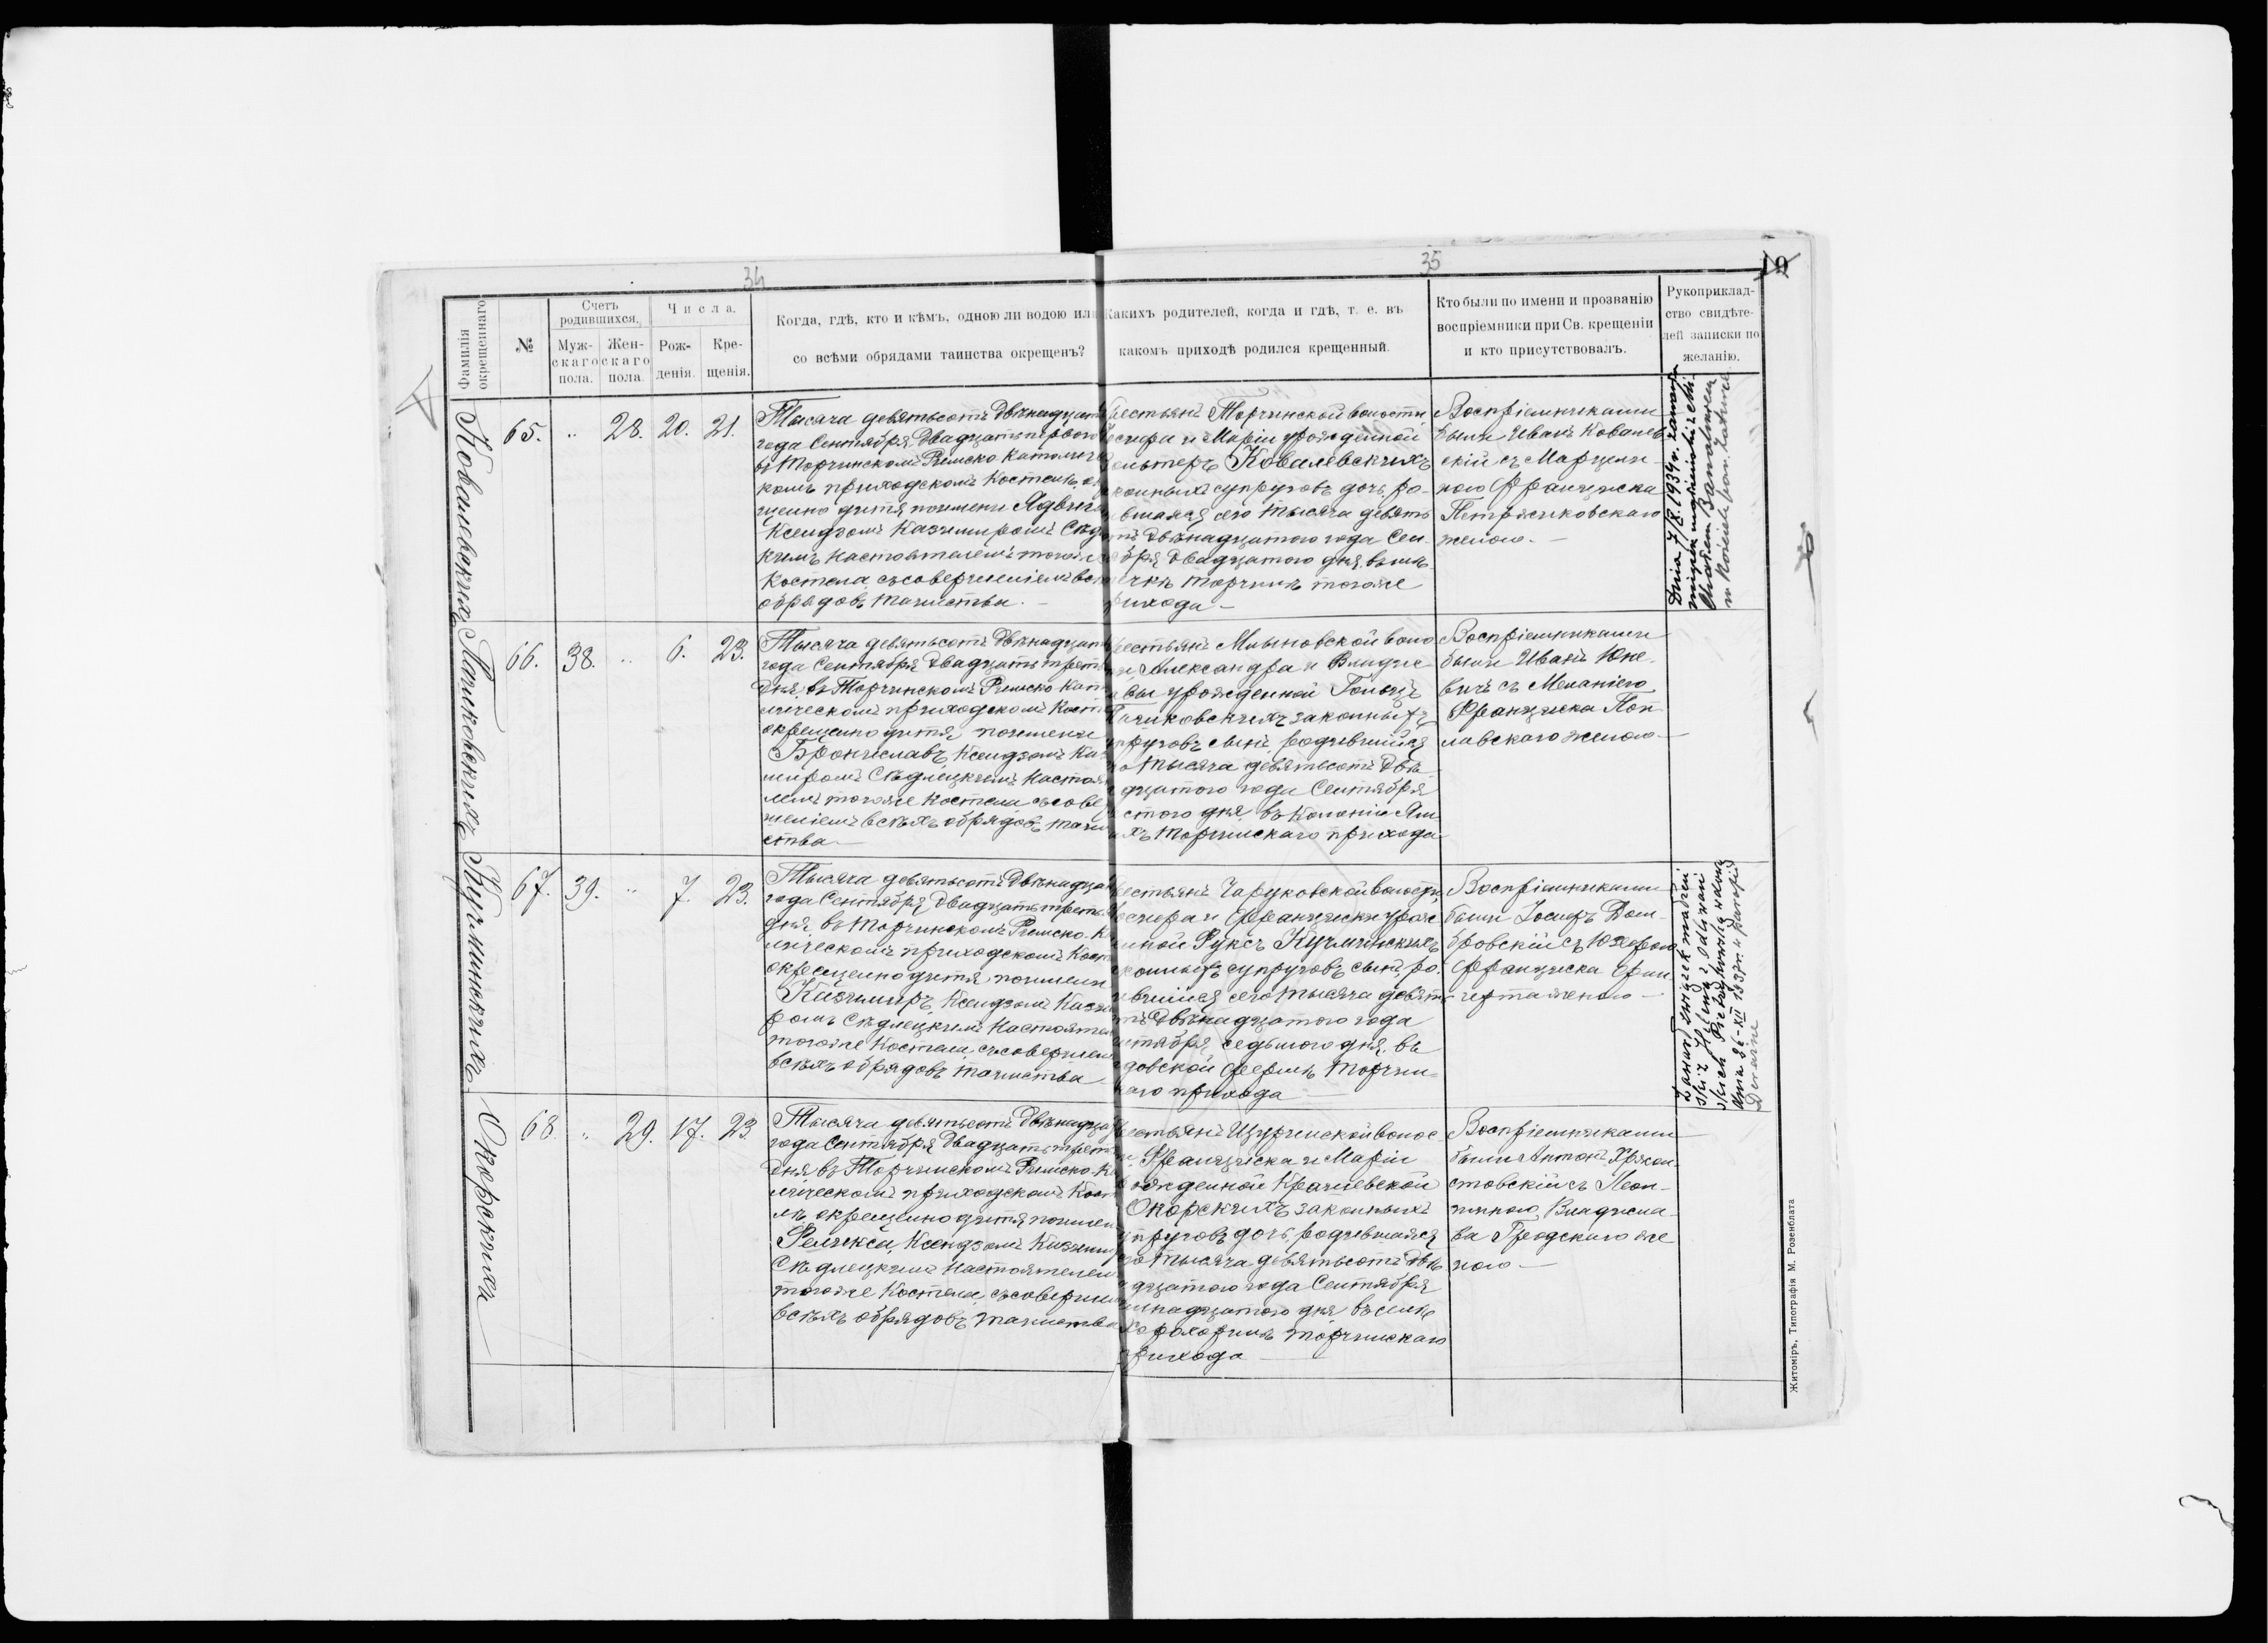 34
35
10
Фамилія окрещеннаго
№
Счетъ родившихся.
Муж-скаго пола.
Жен-скаго пола.
Числа.
Рож-денія.
Кре-щенія.
Когда, гдѣ, кто и кѣмъ, одною ли водою или
со всѣми обрядами таинства окрещенъ?
Какихъ родителей, когда и гдѣ, т. е. въ
какомъ приходѣ родился крещенный.
Кто были по имени и прозванію
воспріемники при Св. крещеніи
и кто присутствовалъ.
Рукоприклад-
ство свидѣте-
лей записки по
желанію.
Ковалевскихъ
65. „ 28. 20. 21.
Тысяча девятьсотъ Двѣнадцат
года Сентября Двадцать перваго
въ Торчинскомъ Римско Католиче
комъ приходскомъ Костелѣ, ок
щено дитя по имени Ядвига
Ксендзомъ Казимиромъ Сѣд
кимъ Настоятелемъ того же
Костела съ совершеніемъ вс
обрядовъ таинства. —
рестьянъ Торчинской волости
осифа и Маріи урожденной
ельтеръ Ковалевскихъ
конныхъ супруговъ дочь, ро-
ившаяся сего тысяча девять
тъ Двѣнадцатого года Сен-
ября Двадцатого дня, въ мѣ
ечкѣ Торчинѣ того же
рихода —
Воспріемниками
были Иванъ Ковалев
скій съ Марцели-
ною Франциска
Петржиковскаго
женою. —
Dnia 7/8. 1934 r. zawarła
w Kościele par. Zaturce
Паниковскихъ
66. 38. „ 6. 23.
Тысяча девятьсотъ Двѣнадцат
года Сентября Двадцать трет
дня, въ Торчинскомъ Римско Кат
лическомъ приходскомъ Косте
окрещено дитя по имени
Брониславъ, Ксендзомъ Ка
миромъ Сѣдлецкимъ Настоя
лемъ того же Костела съ сове
шеніемъ всѣхъ обрядовъ таин
ства —
рестьянъ Млыновской воло
и Александра и Владис
вы урожденной Гольцъ
аниковскихъ законныхъ
пруговъ сынъ, родившійся
о тысяча девятьсотъ Двѣ
дцатого года Сентября
стого дня, въ Колоніи Ям
хъ Торчинскаго прихода
Воспріемниками
были Иванъ Юне-
вичъ съ Меланіею
Франциска Поп
лавскаго женою —
Кучминскихъ
67. 39. „ 7. 23.
Тысяча девятьсотъ Двѣнадца
года Сентября Двадцать треть
дня, въ Торчинскомъ Римско-К
лическомъ приходскомъ Кост
окрещено дитя по имени
Казимиръ, Ксендзомъ Кази
ромъ Сѣдлецкимъ Настояте
того же Костела съ совершен
всѣхъ обрядовъ таинства
рестьянъ Чаруковской волости,
осифа и Франциски урож
нной Руксъ Кучминскихъ
конныхъ супруговъ сынъ, ро-
ившійся сего тысяча девять
тъ Двѣнадцатого года
нтября седьмого дня, въ
довской фермѣ Торчин-
каго прихода —
Воспріемниками
были Іосифъ Дом-
бровскій съ Юзефою
Франциска
женою —
Zawarł związek małżeń
ski z Heleną z Odyńców
dnia 26-XII 1937 r. w parafii
Deraźne
Окорскихъ
68. „ 29. 17. 23.
Тысяча девятьсотъ Двѣнадца
года Сентября Двадцать трет
дня въ Торчинскомъ Римско-К
лическомъ приходскомъ Кост
лѣ окрещено дитя по имен
Феликса, Ксендзомъ Казими
Сѣдлецкимъ Настоятелем
того же Костела съ соверше
всѣхъ обрядовъ таинства
рестьянъ Щуринской волос
и Франциска и Маріи
ожденной Крачевской
Окорскихъ законныхъ
упруговъ дочь, родившаяся
го тысяча девятьсотъ Двѣ
адцатого года Сентября
мнадцатого дня въ селѣ
Хорохоринѣ Торчинскаго
прихода —
Воспріемниками
были Антонъ Хржон-
стовскій съ Леон-
тиною, Владисла-
ва Гродскаго же
ною —
Житоміръ, Типографія М. Розенблата